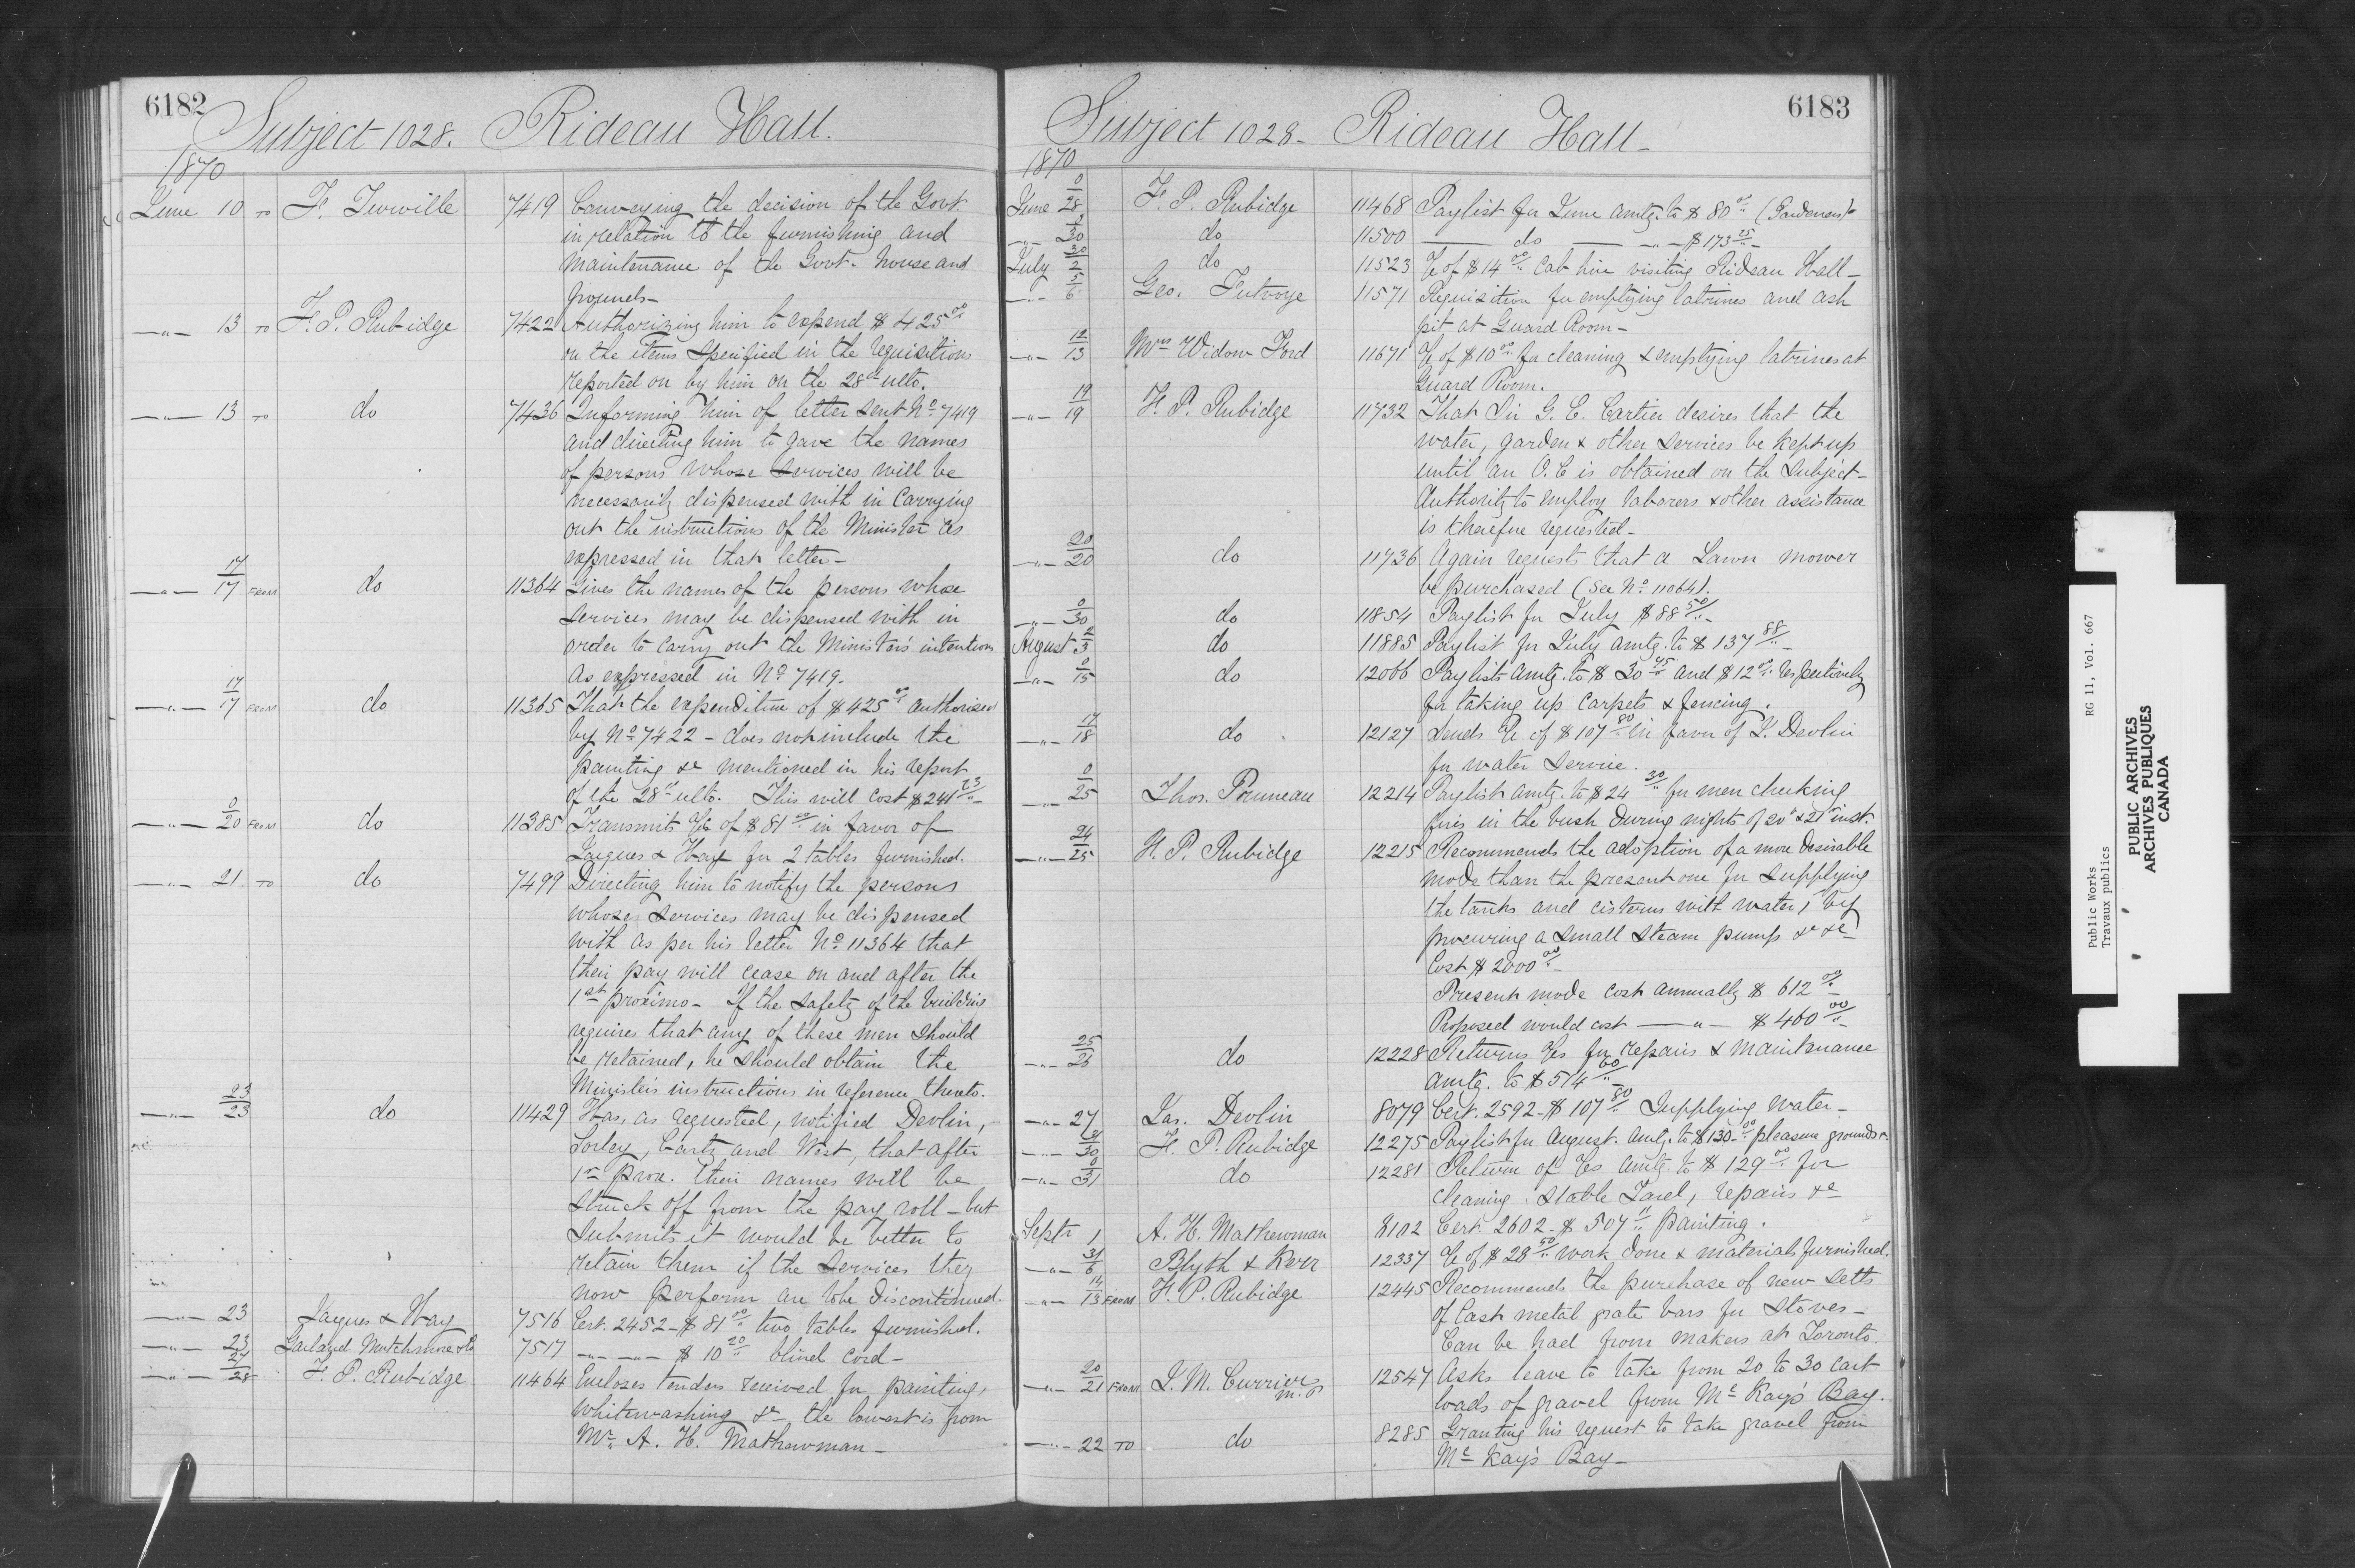 6182
Subject 1028. Rideau Hall.
1870
June 10 TO F. Turville 7419 Conveying the decision of the Govt.
in relation to the furnishing and
Maintenance of the Govt. house and
grounds-
-"- 13 TO F. P. Rubidge 7422 Authorizing him to expend $425 00/"
on the items specified in the requisitions
reported on by him on the 28th ulto.
-"- 13 TO do 7436 Informing him of letter sent No. 7419
and directing him to gave the names
of persons whose services will be
necessarily dispensed with in Carrying
out the instructions of the Minister as
expressed in that letter-
-"- 17/17 FROM do 11364 Gives the names of the persons whose
services may be dispensed with in
order to carry out the Minister's intentions
As expressed in No. 7419.
-"- 17/17 FROM do 11365 That the expenditure of $425 00/" authorised
by No. 7422 - does not include the
painting &c mentioned in his report
of the 28th ulto. This will cost $241 23/"-
-"- 0/20 FROM do 11385 Transmits a/c of $81 00/" in favor of
Jaques & Hay for 2 tables furnished.
-"- 21 TO do 7499 Directing him to notify the persons
whose services may be dispensed
with as per his letter No. 11364 that
their pay will cease on and after the
1st proximo - If the safety of the building
requires that any of these men should
be retained, he should obtain the
Minister's instructions in reference thereto.
-"- 23/23 do 11429 Has, as requested, notified Devlin,
Sorley, and West, that after
1st prox. their names will be
struck off from the pay roll - but
Submits it would be better to
retain them if the services they
now perform are to be discontinued.
-"- 23 Jaques & Hay 7516 Cert. 2452 - $81 00/" two tables furnished.
-"- 23 Garland Mutchmore & Co 7517 -"- -"- $10 20/" blind cord-
-"- 27/28 F. P. Rubidge 11464 Encloses tenders received for painting,
Whitewashing &c the lowest is from
Mr. A. H. Mathewman-
6183
Subject 1028- Rideau Hall-
1870
June 0/28 F. P. Rubidge 11468 Paylist for June amtg. to $80 00/" (Gardeners)
-"- 30 do 11500 — do — -"- $173 25/"-
July 30/2 do 11523 a/c of $14 00/" Cab hire visiting Rideau Hall-
-"- 5/6 Geo. Futvoye 11571 Requisition for emptying latrines and ash
pit at Guard Room-
-"- 12/13 Mrs Widow Ford 11671 a/c of $10 00/" for cleaning & emptying latrines at
Guard Room.
-"- 19/19 F. P. Rubidge 11732 That Sir G. E. Cartier desires that the
water, garden & other services be kept up
until an O.C is obtained on the subject-
Authority to employ laborers & other assistance
is therefore requested-
-"- 20/20 do 11736 Again requests that a Lawn mower
be purchased (See No. 11064).
-"- 0/30 do 11854 Paylist for July $88 50/"-
August 2/3 do 11885 Paylist for July amtg. to $137 88/"-
-"- 0/15 do 12066 Paylists amtg. to $30 45/" and $12 00/" respectively
for taking up carpets & fencing.
-"- 17/18 do 12127 Sends a/c of $107 80/" in favor of J. Devlin
for water service.
-"- 0/25 Thos. Pruneau 12214 Paylist amtg. to $24 30/" for men checking
fires in the bush during nights of 20th & 21st inst.
-"- 24/25 F. P. Rubidge 12215 Recommends the adoption of a more desirable
mode than the present one for supplying
the tanks and cisterns with water, by
procuring a small steam pump &c &c
Cost $2000 00/"-
Present mode cost annually $612 00/"
Proposed would cost -"- $400 00/"-
-"- 25/26 do 12228 Returns a/cs for repairs & maintenance
amtg. to $514 60/"
-"- 27 Jas. Devlin 8079 Cert. 2592 - $107 80/" Supplying water-
-"- 30 F. P. Rubidge 12275 Paylist for August. Amtg. to $130 00/" pleasure grounds &c
-"- 0/31 do 12281 Return of a/cs amtg. to $129 00/" for
cleaning stable Yard, repairs &c
Septr 1 A. H. Mathewman 8102 Cert. 2602 - $507 11/" painting.
-"- 31/6 Blyth & Kerr 12337 a/c of $28 50/" work done & materials furnished.
-"- 13 FROM F. P. Rubidge 12445 Recommends the purchase of new setts
of Cast metal grate bars for stoves-
Can be had from makers at Toronto.
-"- 20/21 FROM J. M. Currier M.P 12547 Asks leave to take from 20 to 30 cart
loads of gravel from McKay's Bay.
-"- 22 TO do 8285 Granting his request to take gravel from
McKay's Bay-
Public Works RG 11, Vol. 667
Travaux publics
PUBLIC ARCHIVES
ARCHIVES PUBLIQUES
CANADA